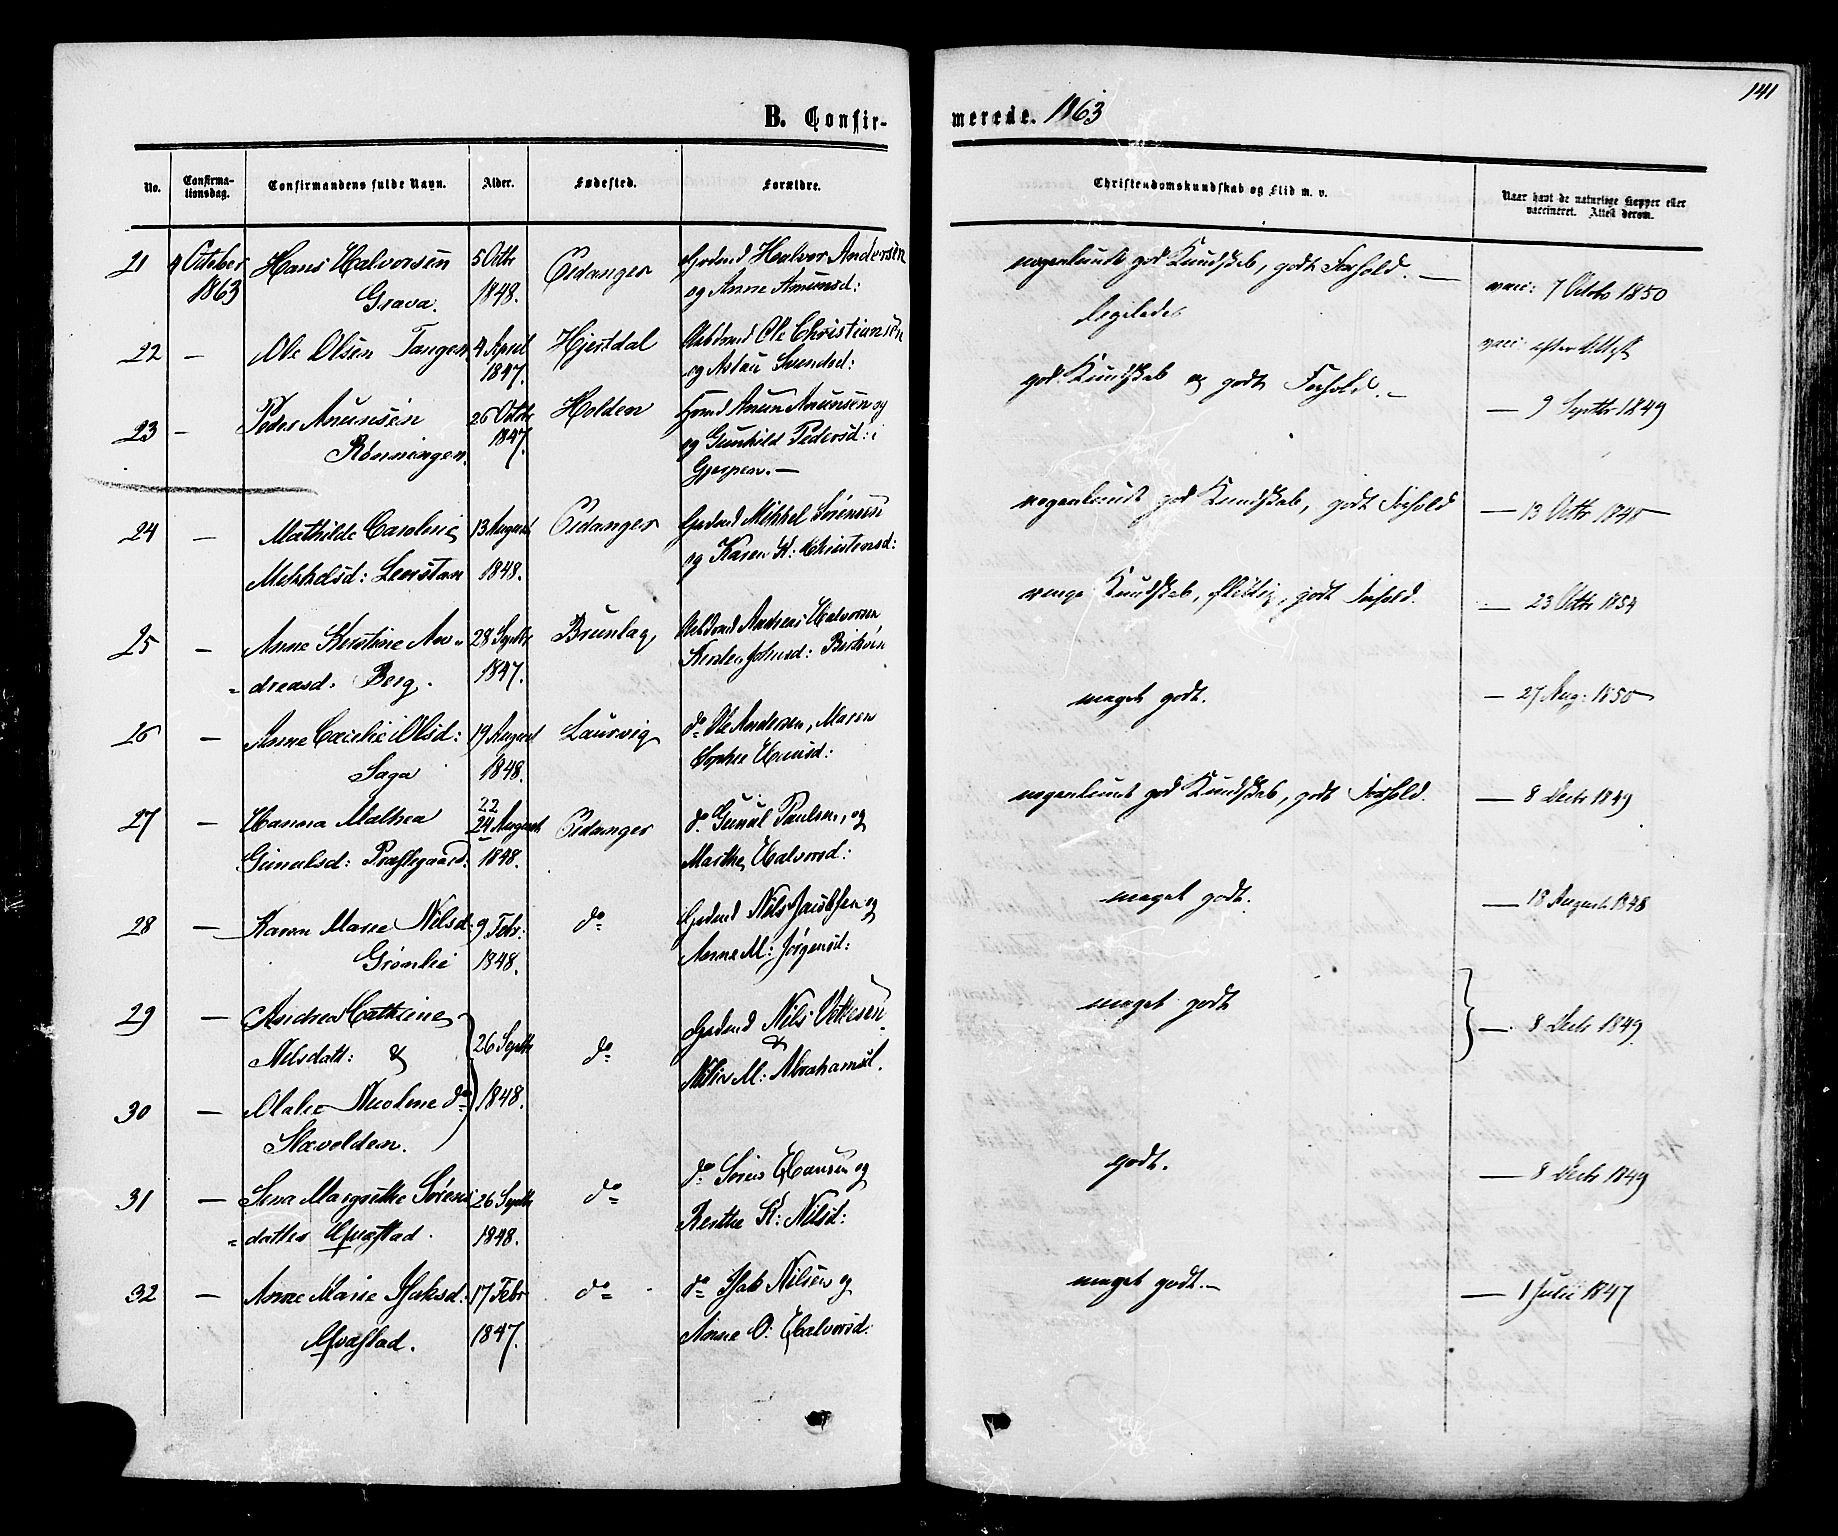 141
B. Confir-
merede. 1863
No.
Confirma-
tionsdag.
Confirmandens fulde Navn.
Alder.
Fødested.
Forældre.
Christendomskundskab og Flid m. v.
Naar havt de naturlige Kopper eller
vaccineret. Attest derom.
21 4 October Hans Halvorsen 5 Octbr Eidanger Gaardmd Halvor Andersen nogenlunde god Kundskab, godt Forhold. —
1863 Grava. 1848. og Anne Amundsd: vacc: 7 Octob 1850
ligeledes
22 — Ole Olsen Tangen 4 April Hjertdal Arbdsmd Ole Christiansen vacc: efter Attest
1847. og Aslau Svendsd:
23 — Peder Anunsen 26 Octbr Holden Anun Anunsen og god Kundskab og godt Forhold. — — 9 Septbr 1849
Rønningen. 1847. og Gunhild Pedersd: i
Gjerpen. —
24 — Mathilde Caroline 13 August Eidanger Gaardmd Mikkel Sørensen nogenlunde god Kundskab, godt Forhold — 13 Octbr 1848
Mikkelsd: Leerstan 1848. og Karen K: Christensd:
25 — Anne Kirstine An- 28 Septbr Brunlag Arbdsmd Andreas Halvorsen ringe Kundskab, flittig, godt Forhold. — 23 Octbr 1854
dreasd: Berg. 1847. Johnsd:
26 — Anne Cecilie Olsd: 19 August Laurvig do Ole Andersen, Maren meget godt. — 27 Aug: 1850
Saga 1848. Sophie Hansd:
22
27 — Hanna Mathea 24 August Eidanger do Gunul Paulsen, og nogenlunde god Kundskab, godt Forhold. — 8 Decbr 1849
Gunulsd: Præstegaard: 1848. Marthe Halvorsd:
28 — Karen Marie Nilsd: 9 Febr: do Gaardmd Nils Jacobsen og meget godt. — 18 August 1848
Grønlie 1848. Anne M: Jørgensd:
29 — Andrea Cathrine
Nilsdatt: & 26 Septbr do Gaardmd Nils Vettesen meget godt — 8 Decbr 1849
&
30 — Malie Nicoline do 1848. M: Abrahamsd.
Skavolden.
31 — Lena Margrethe Sørens 26 Septbr do do Søren Hansen og godt. — 8 Decbr 1849
datter Ørstad. 1848. Berthe K: Nilsd:
32 — Anne Marie Isaksd: 17 Febr do do Isak Nilsen og meget godt. — — 1 Julii 1847
1847. Anne O: Halvorsd: